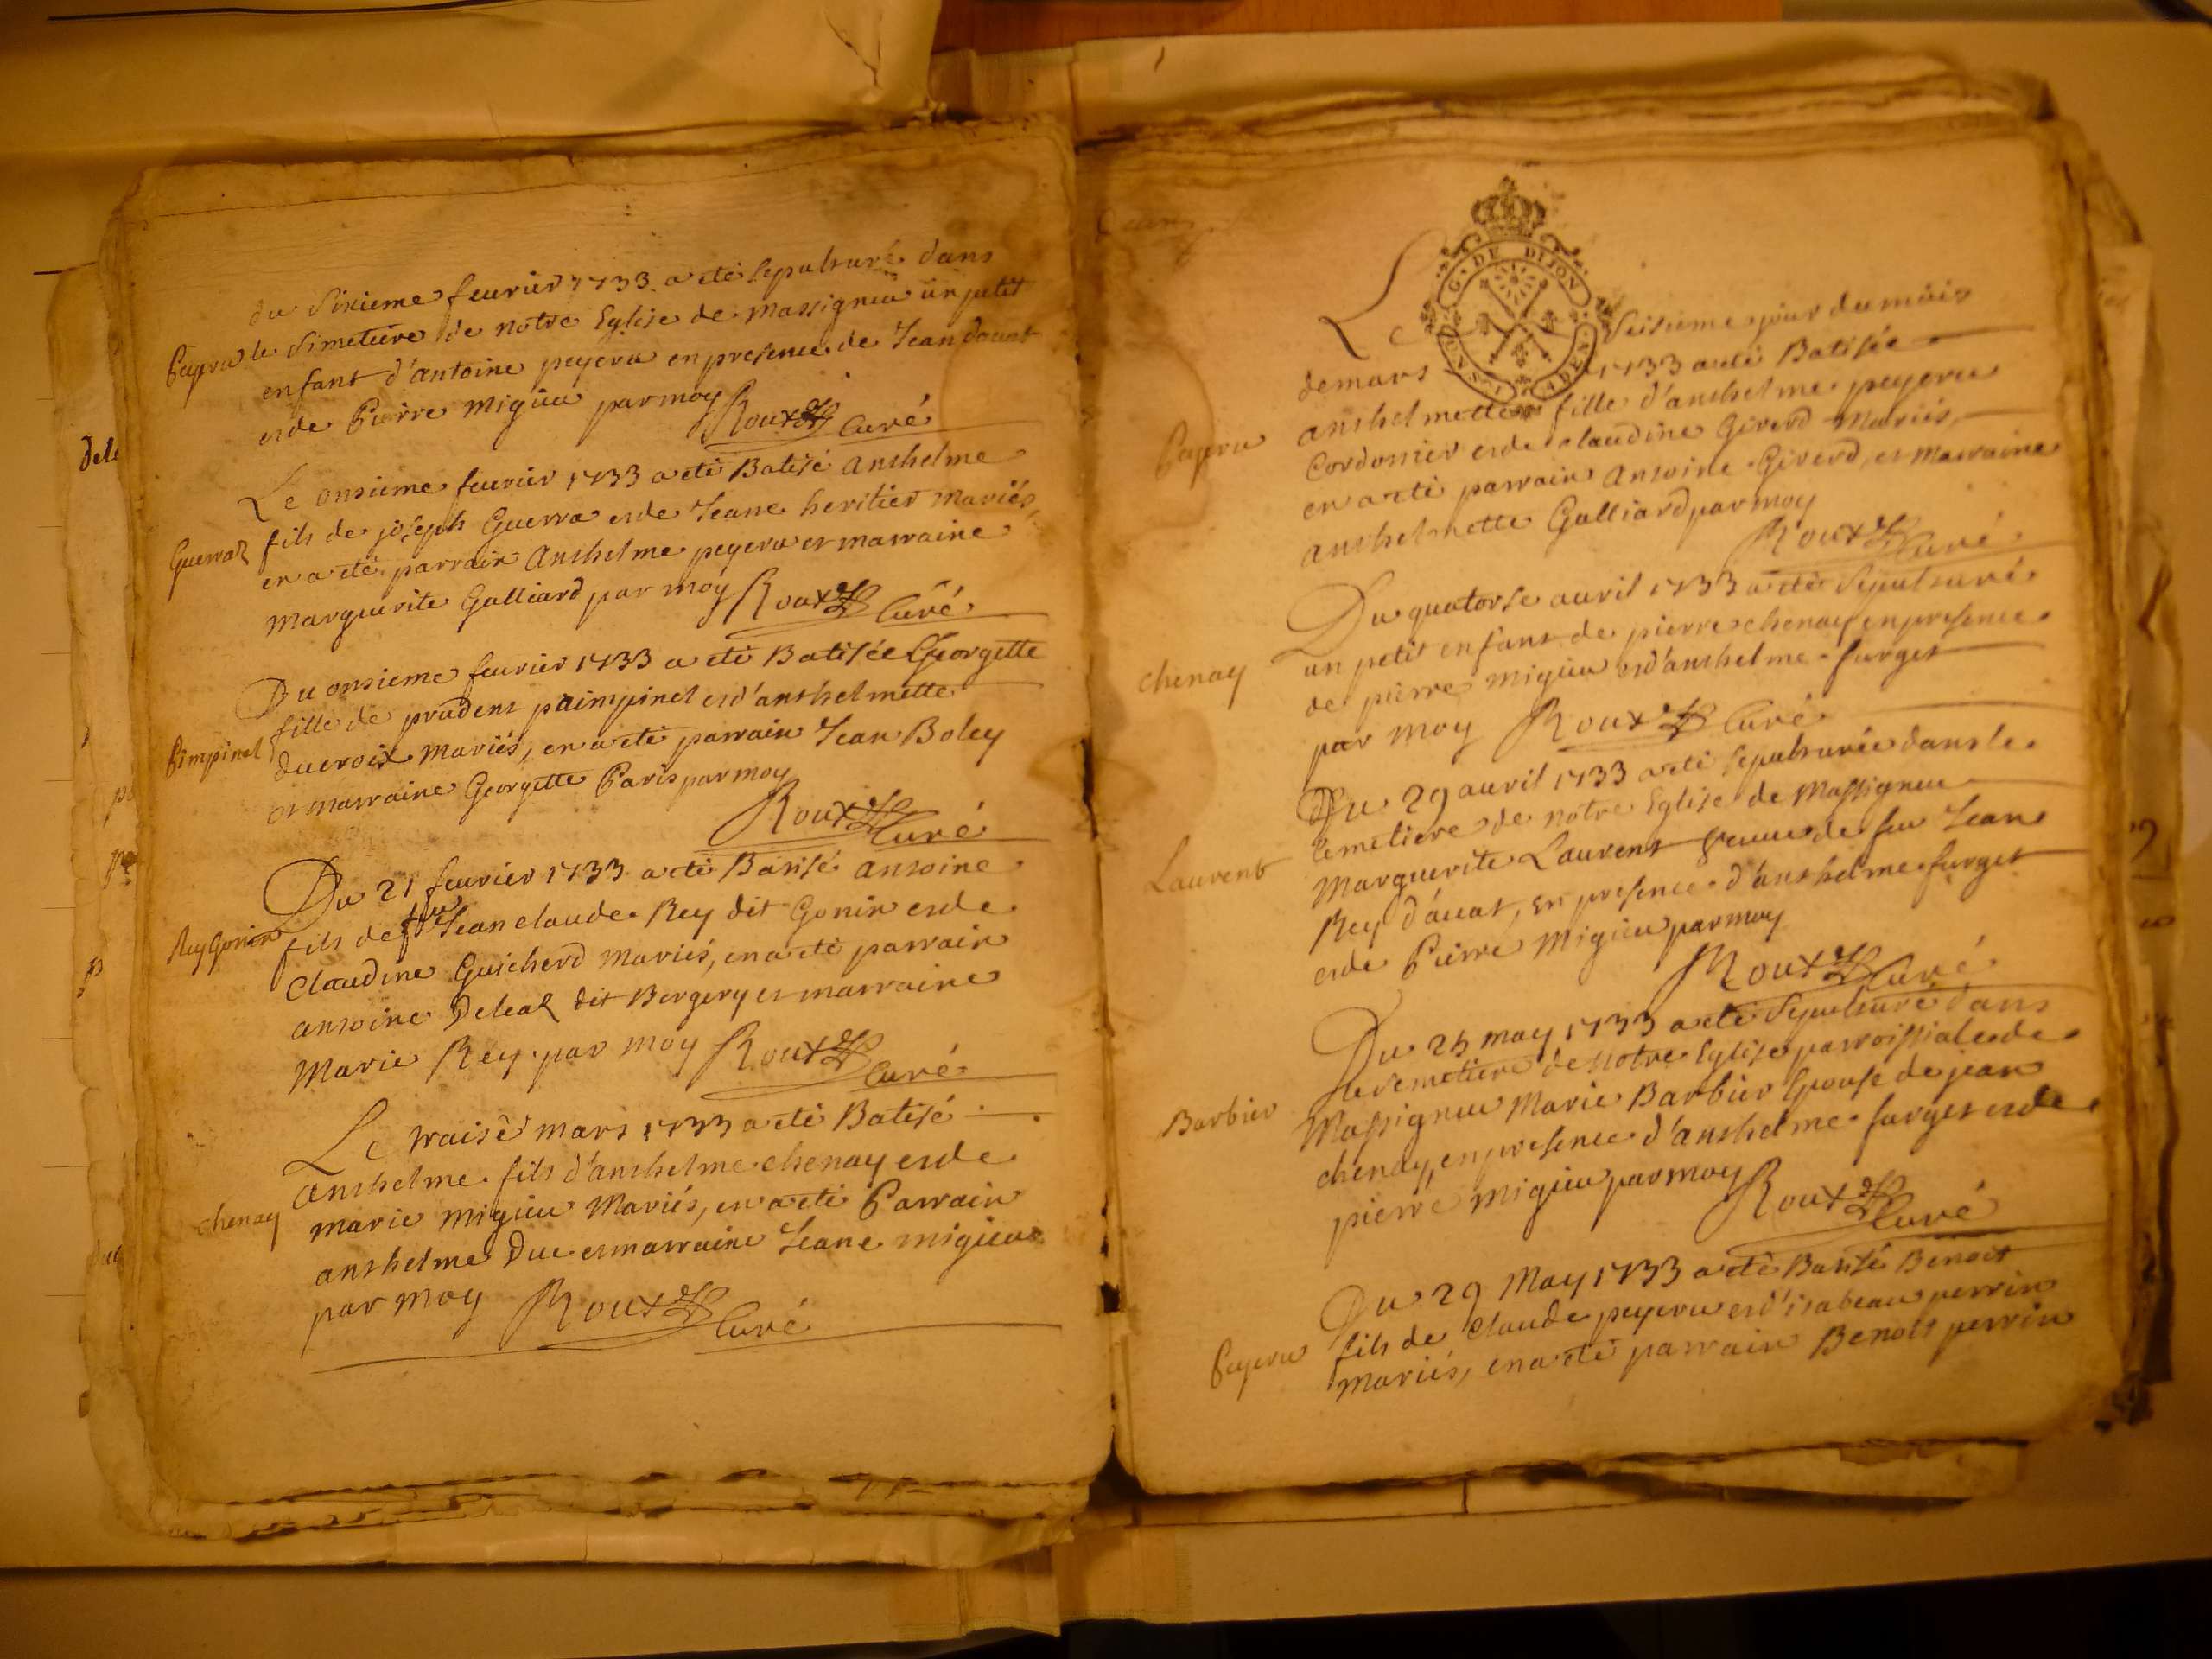 du Sixieme feurier 1733 a eté sepulturé dans
Peyeru le Simetiere de notre Eglise de Massigneu un petit
enfant d'antoine peyeru en presence de Jean dauat
et de Pierre Migieu par moy
Roux Curé
Le onsieme feurier 1733 a eté Batisé Anthelme
fils de joseph Guerra et de Jeane heritier Mariés,
Guerraz
en a eté parrain Anthelme peyeru et marraine
Marguerite Galliard par moy Roux Curé
Du onsieme feurier 1733 a eté Batisée Georgette
fille de prudent paimpinel et d'anthelmette
Pimpinel
ducroix Mariés, en a eté parrain Jean Boley
et marraine Georgette Paris par moy
Roux Curé
Du 21 feurier 1733 a eté Batisé antoine
Rey Gonin
fils de feu Jean claude Rey dit Gonin et de
Claudine Guicherd Mariés, en a eté parrain
antoine Deleaz dit Bergery et marraine
Marie Rey par moy Roux Curé
Le traisè mars 1733 a eté Batisé
anthelme fils d'anthelme chenay et de
chenay
marie Migieu Mariés, en a eté Parrain
anthelme Duc et marraine Jeane migieu
par moy Roux Curé
G. DE DIJON
Le Seisieme jour du mois
de mars 1733 a eté Batisée
anthelmette fille d'anthelme peyeru
Peyeru
Cordonier et de claudine Girerd Mariés,
en a eté parrain Antoine Girerd, et Marraine
anthelmette Galliard par moy
Roux Curé
Du quatorse auril 1733 a eté Sepulturé
chenay
un petit enfant de pierre chenay en presence
de pierre migieu et d'anthelme furget
par moy Roux Curé
Du 29 auril 1733 a eté sepulturée dans le
Cemetiere de notre Eglise de Massigneu
Laurent
Marguerite Laurent veuue de feu Jean
Rey d'auat, en presence d'anthelme furget
et de Pierre Migieu par moy
Roux Curé
Du 25 may 1733 a eté Sepulturé dans
le Cemetiere de notre Eglise parroissiale de
Barbier
Massigneu Marie Barbier Epouse de jean
chenay, en presence d'anthelme furget et de
pierre migieu par moy
Roux Curé
Du 29 May 1733 a eté Batisé Benoit
Peyeru
fils de Claude peyeru et d'isabeau perrin
Mariés, en a eté parrain Benoit perrin